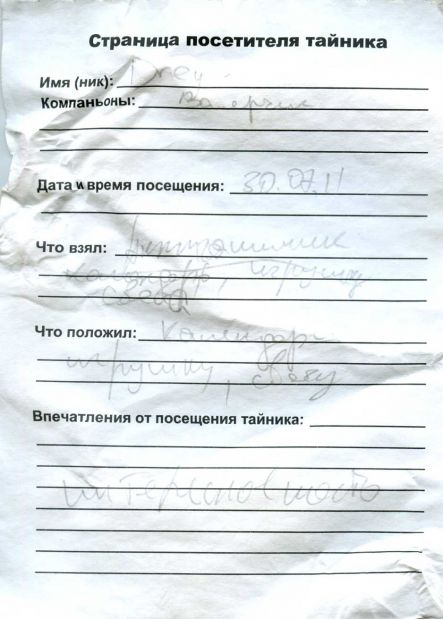 Страница посетителя тайника
Имя (ник): Drey
Компаньоны: Валерчик
Дата и время посещения: 30.07.11
Что взял:
игрушку
Что положил: календарь
игрушку, свечу
Впечатления от посещения тайника: